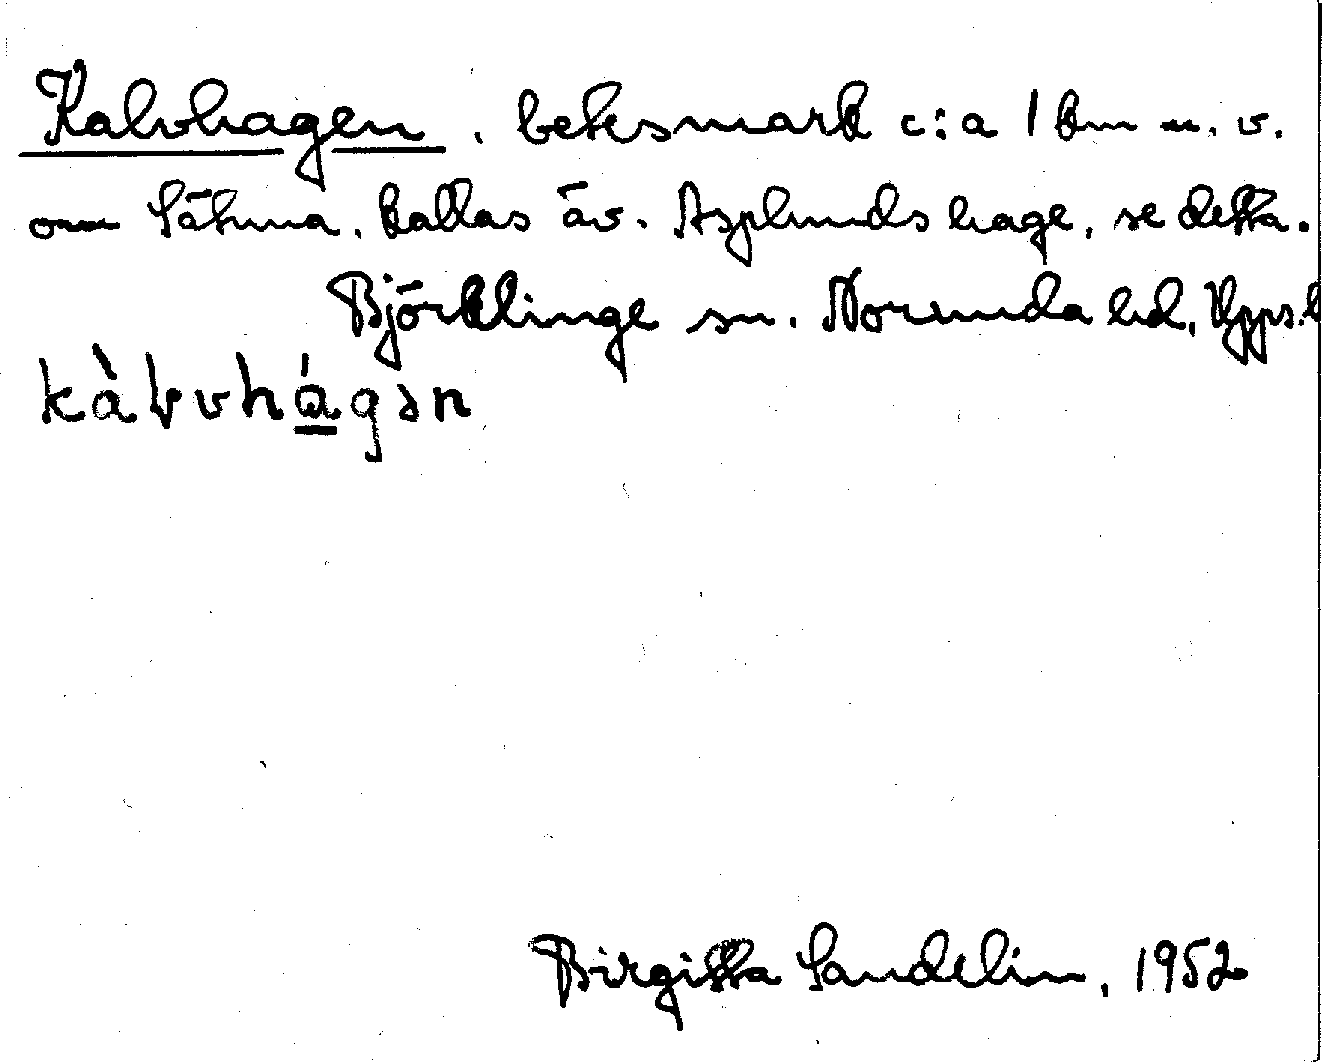 Kalvhagen, betesmark c:a 1 km n. v.
om Sätuna. Kallas äv. Asplunds hage, se detta.
Björklinge sn. Norunda hd, Upps. l
kàḷvhá̱gən
Birgitta Sandelin, 1952